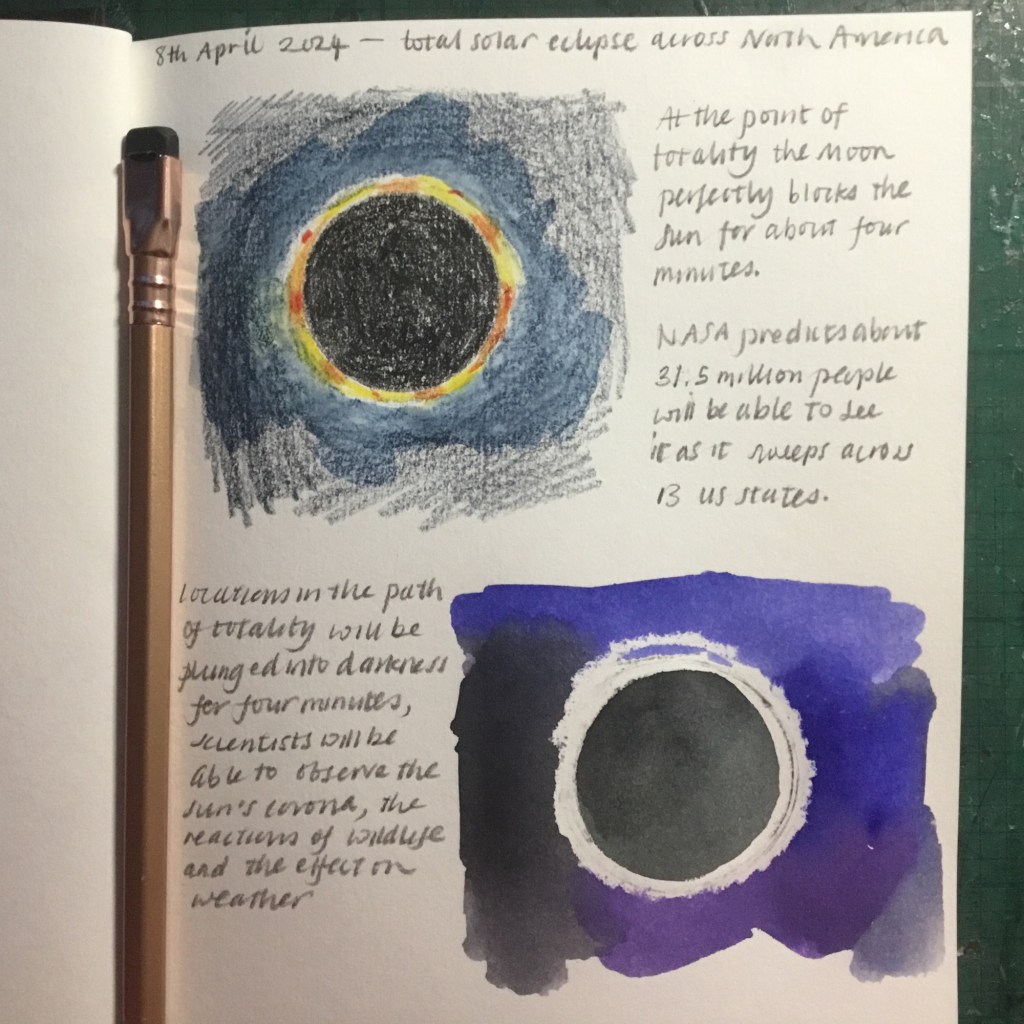 8th April 2024 — total solar eclipse across North America
At the point of
totality the Moon
perfectly blocks the
sun for about four
minutes.
NASA predicts about
31.5 million people
will be able to see
it as it sweeps across
13 US states.
Locations in the path
of totality will be
plunged into darkness
for four minutes,
scientists will be
able to observe the
sun's corona, the
reactions of wildlife
and the effect on
weather